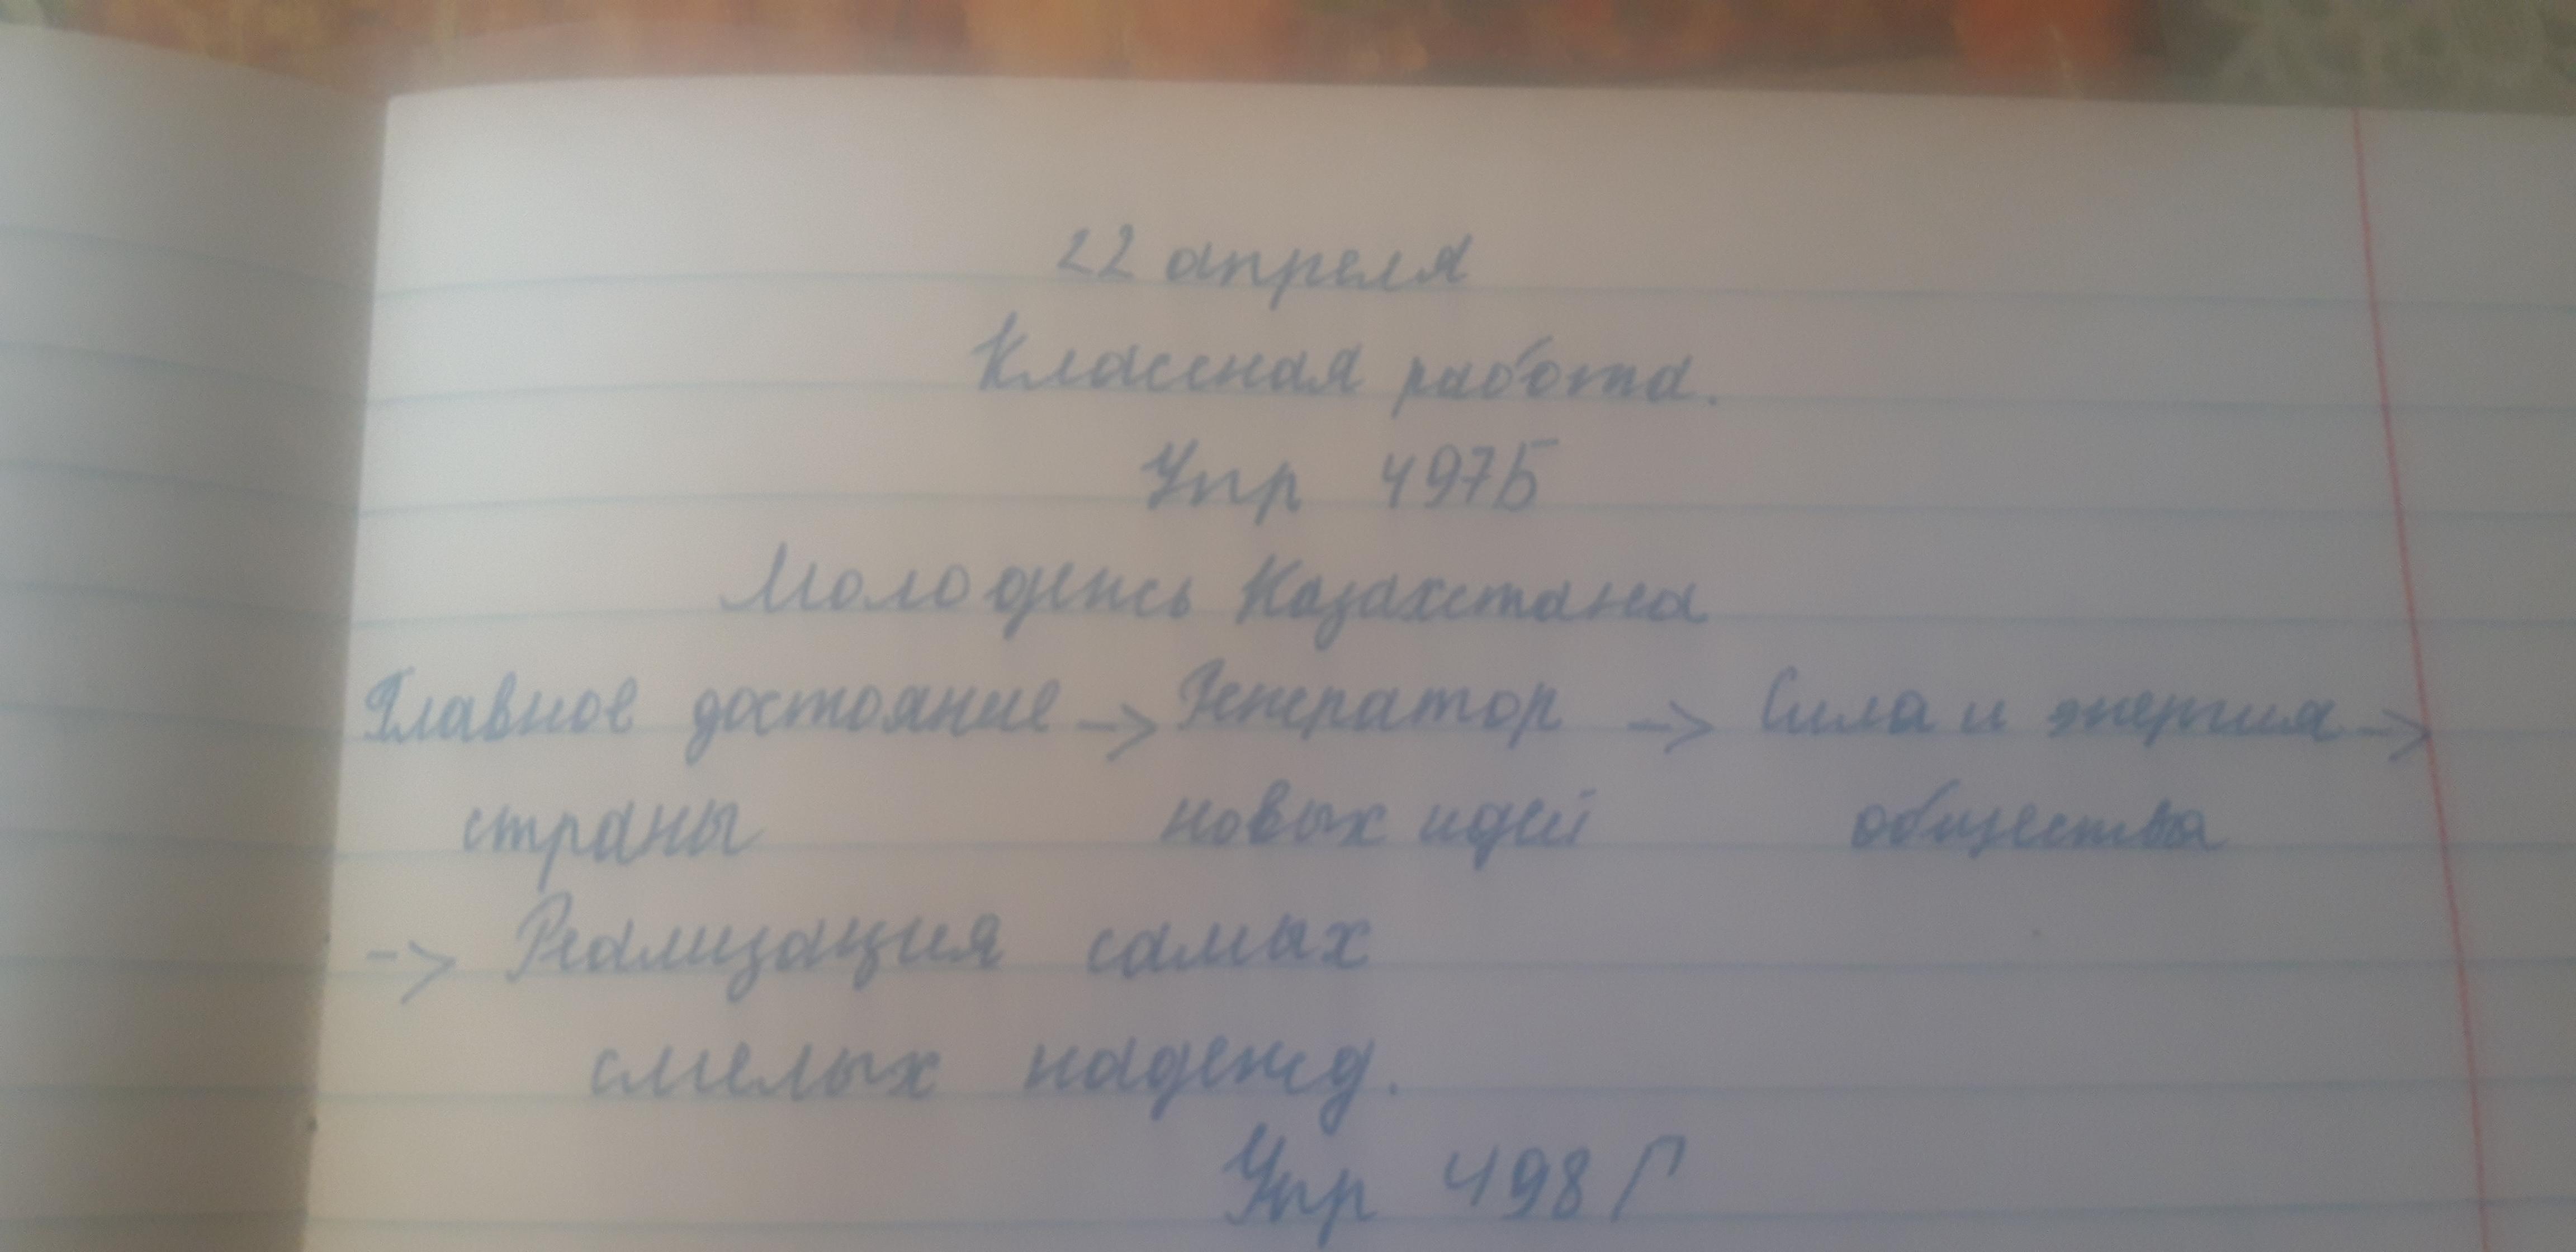 22 апреля
Классная работа.
Упр 497Б
Молодежь Казахстана
Главное достояние -> Генератор -> Сила и энергия ->
страны новых идей общества
-> Реализация самых
смелых надежд.
Упр 498 Г